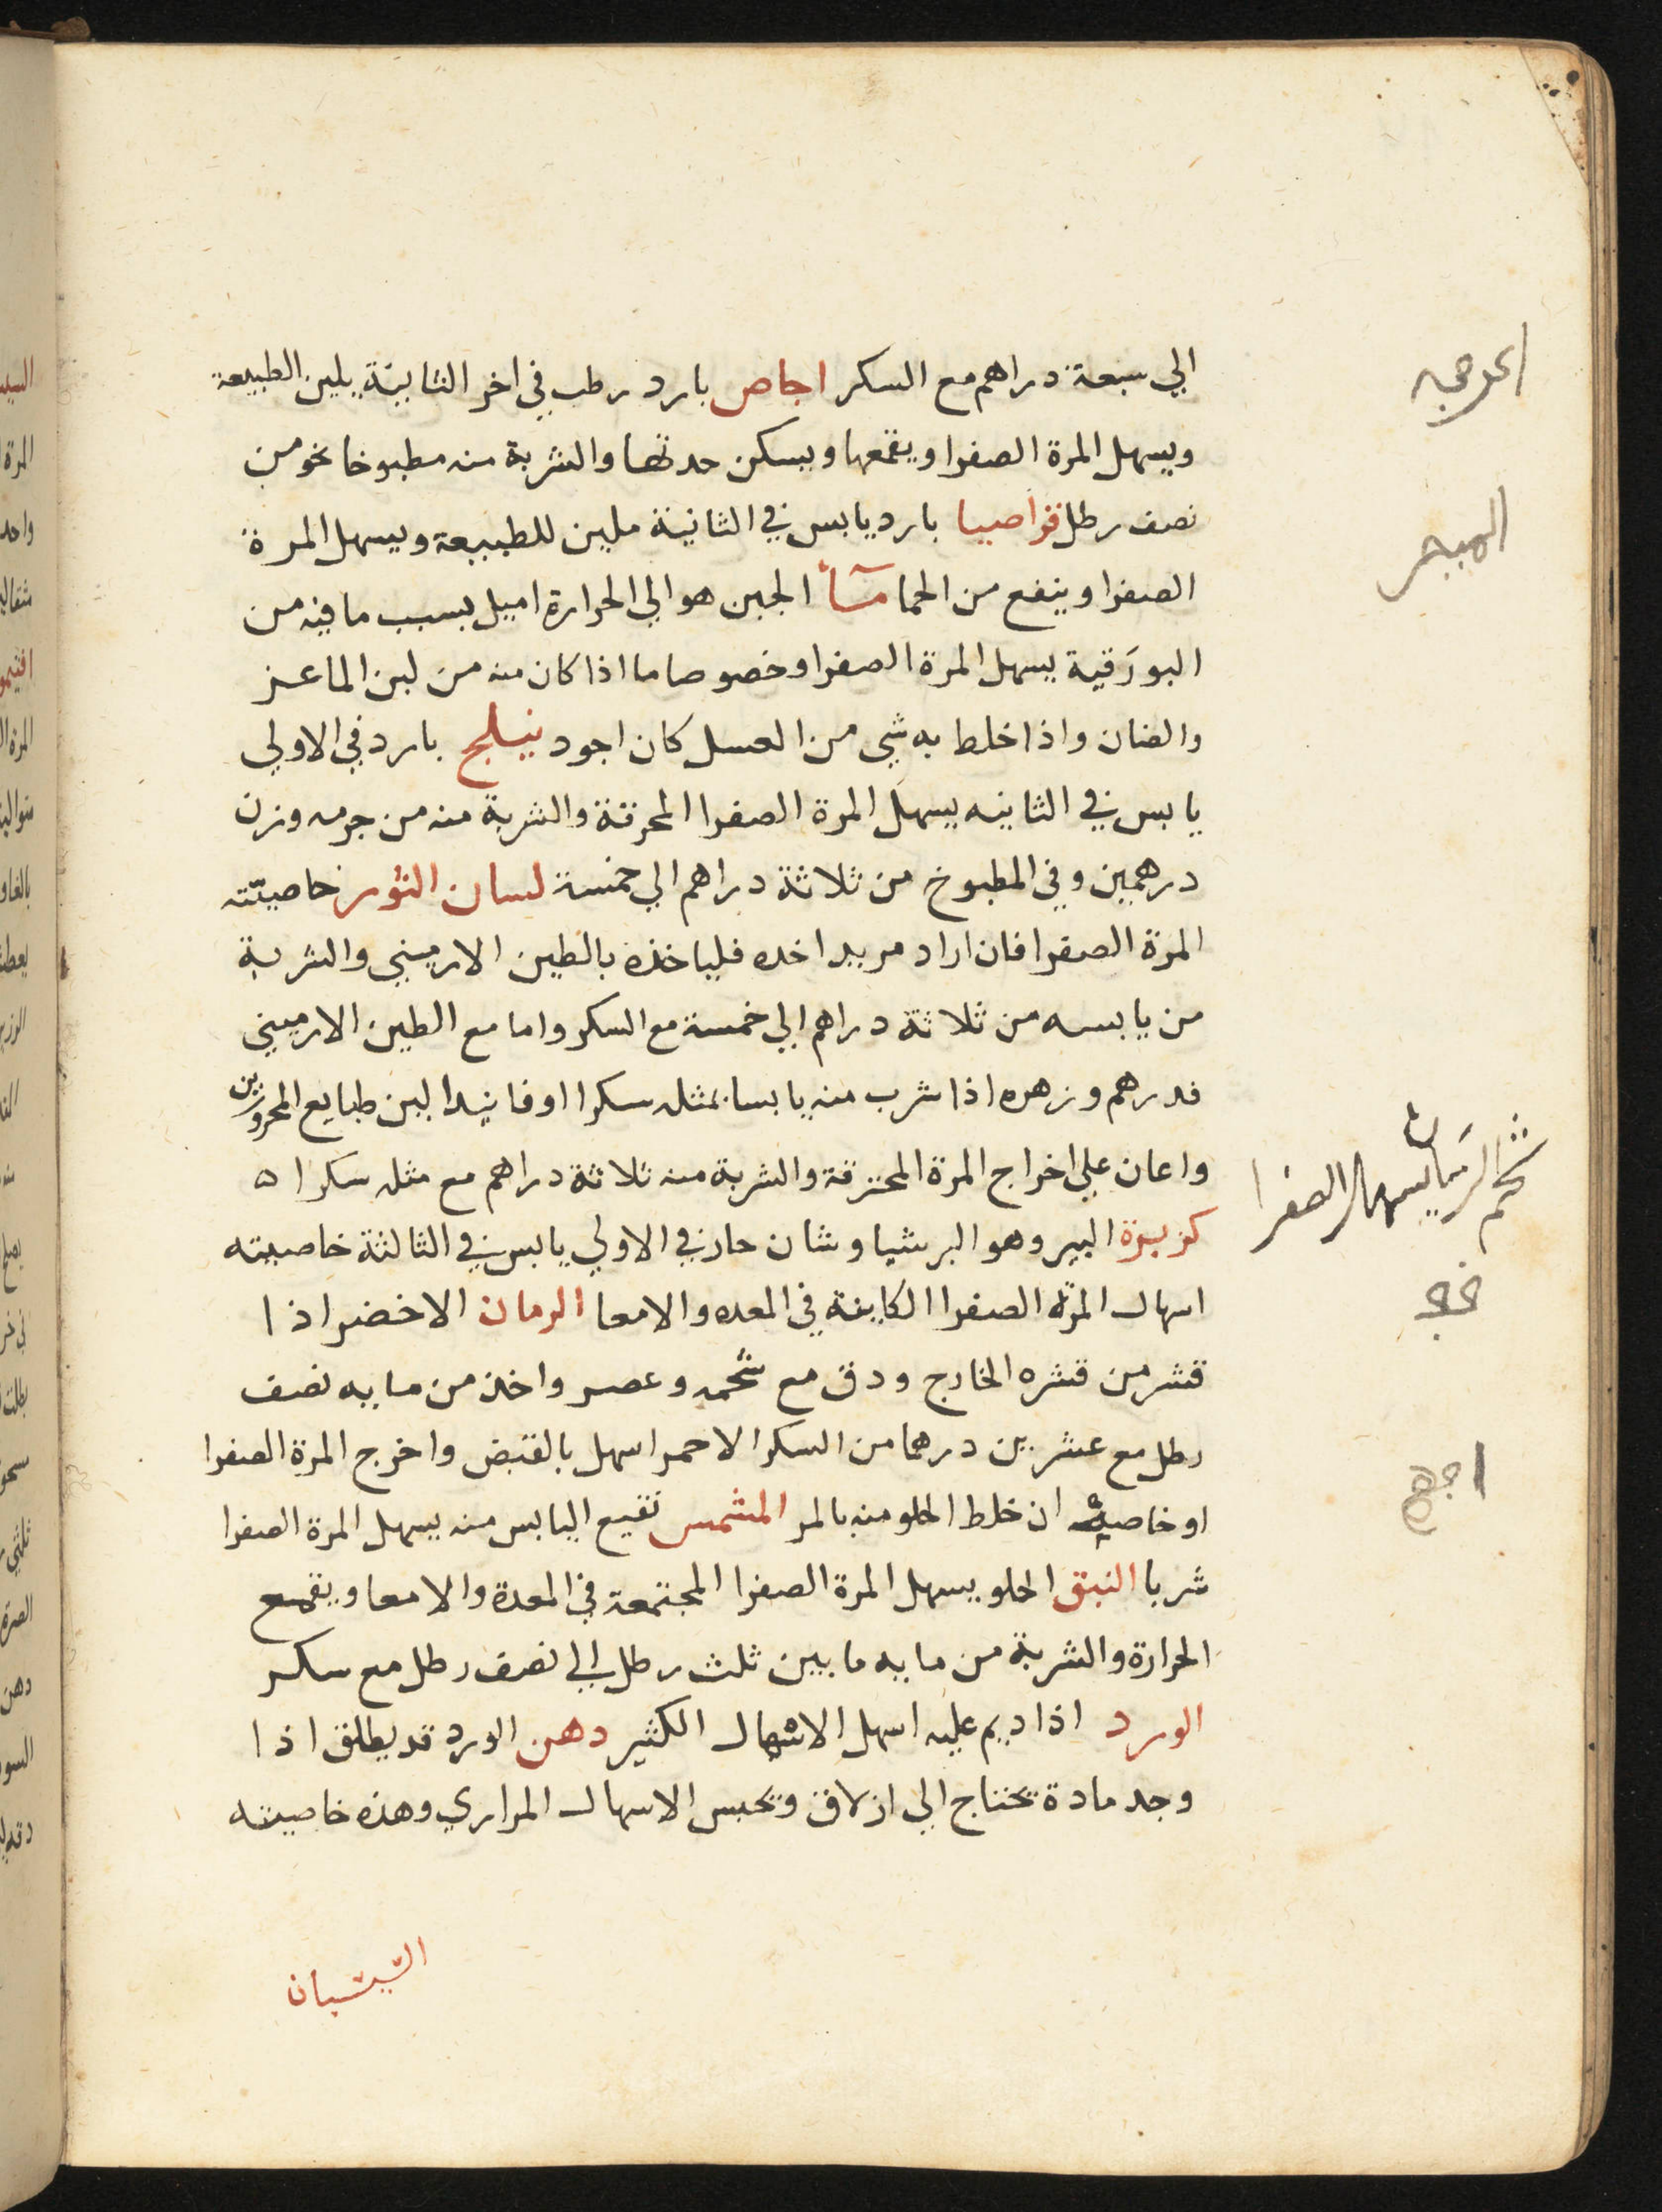 الي سبعة دراهم مع السكر اجاص بارد رطب في اخر الثانية يلين الطبيعة
ويسهل المرة الصفرا ويقمعها ويسكن حدتها والشربة منه مطبوخا نحو من
نصف رطل قراصيا بارد يابس في الثانية ملين للطبيعة ويسهل المرة
الصفرا وينفع من الحما مآ الجبن هو الي الحرارة اميل بسبب ما فيه من
البورقية يسهل المرة الصفرا وخصوصا ما اذا كان منه من لبن الماعز
والضان واذا خلط به شي من العسل كان اجود نيلج بارد في الاولي
يابس في الثانيه يسهل المرة الصفرا المحرقة والشربة منه من جرمه وزن
درهمين وفي المطبوخ من ثلاثة دراهم الي خمسة لسان الثور خاصيته
المرة الصفرا فان اراد مريد اخده فلياخذه بالطين الارميني والشربة
من يابسه من ثلاثة دراهم الي خمسة مع السكر واما مع الطين الارميني
فدرهم وزهره اذا شرب منه يابسا بمثله سكرا او فانيدا لين طبايع المحرورين
واعان علي اخراج المرة المحترقة والشربة منه ثلاثة دراهم مع مثله سكرا ه
كزبرة البير وهو البرشياوشان حار في الاولي يابس في الثالثة خاصيته
اسهال المرة الصفرا الكاينة في المعده والامعا الرمان الاخضر اذا
قشر من قشره الخارج ودق مع شحمه وعصر واخذ من مايه نصف
رطل مع عشرين درهما من السكر الاحمر اسهل بالقبض واخرج المرة الصفرا
او خاصيته ان خلط الحلو منه بالمر المشمس نقيع اليابس منه يسهل المرة الصفرا
شربا النبق الحلو يسهل المرة الصفرا المجتمعة في المعدة والامعا ويقمع
الحرارة والشربة من مايه ما بين ثلث رطل الي نصف رطل مع سكر
الورد اذا ديم عليه اسهل الاسهال الكثير دهن الورد قد يطلق اذا
وجد مادة تحتاج الي ازلاق ويحبس الاسهال المراري وهذه خاصيته
شحم الرمان يسهل الصفرا